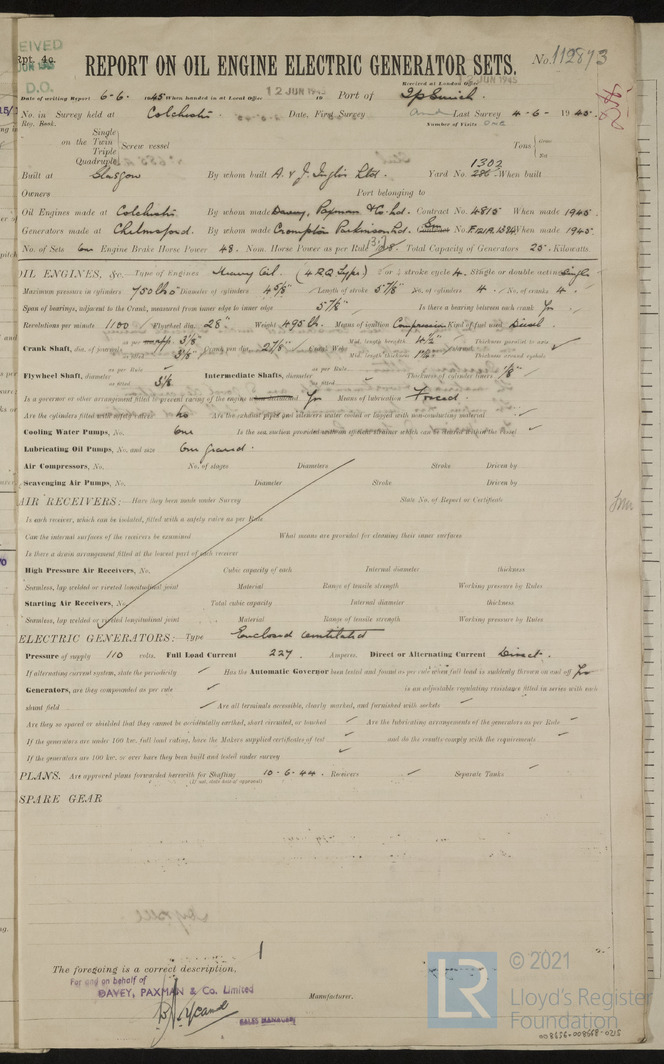 Rpt. 4c.
REPORT ON OIL ENGINE ELECTRIC GENERATOR SETS.
No. 112873
JUN 1945
D.O.
Received at London Office
JUN 1945
Date of writing Report 6-6-1945 When handed in at Local Office 12 JUN 1945 19 Port of Ipswich.
No. in Survey held at Colchester Date, First Survey and Last Survey 4-6-1945
Reg. Book. Number of Visits One
Single
on the Twin
Triple
Quadruple
Screw vessel
Tons Gross
Net
1302
Built at Glasgow By whom built A. & J. Inglis Ltd. Yard No. 286 When built
Owners Port belonging to
Oil Engines made at Colchester By whom made Davey, Paxman & Co. Ltd. Contract No. 4815 When made 1945.
Generators made at Chelmsford. By whom made Crompton Parkinson Ltd. No. When made 1945.
No. of Sets One Engine Brake Horse Power 48. Nom. Horse Power as per Rule Total Capacity of Generators 25. Kilowatts.
OIL ENGINES, &c.—Type of Engines Heavy Oil. (4RQ Type.) 2 or 4 stroke cycle 4. Single or double acting Single
Maximum pressure in cylinders 750 lbs Diameter of cylinders 4 5/8" Length of stroke 5 7/8" No. of cylinders 4 No. of cranks 4.
Span of bearings, adjacent to the Crank, measured from inner edge to inner edge 5 7/8" Is there a bearing between each crank Yes
Revolutions per minute 1100 Flywheel dia. 28" Weight 495 lb. Means of ignition Compression Kind of fuel used Diesel
Crank Shaft, dia. of journals as per Rule 3 1/8" as fitted 3 1/8" Crank pin dia. 2 7/8" Crank Webs Mid. length breadth Mid. length thickness Thickness parallel to axis Thickness around eyehole
Flywheel Shaft, diameter as per Rule as fitted 3 1/8 Intermediate Shafts, diameter as per Rule as fitted Thickness of cylinder liners 1/8"
Is a governor or other arrangement fitted to prevent racing of the engine Yes Means of lubrication Forced.
Are the cylinders fitted with safety valves No Are the exhaust pipes and silencers water cooled or lagged with non-conducting material
Cooling Water Pumps, No. One Is the sea suction provided with an efficient strainer which can be cleared within the vessel
Lubricating Oil Pumps, No. and size One geared.
Air Compressors, No. No. of stages Diameters Stroke Driven by
Scavenging Air Pumps, No. Diameter Stroke Driven by
AIR RECEIVERS:—Have they been made under Survey State No. of Report or Certificate
Is each receiver, which can be isolated, fitted with a safety valve as per Rule
Can the internal surfaces of the receivers be examined What means are provided for cleaning their inner surfaces
Is there a drain arrangement fitted at the lowest part of each receiver
High Pressure Air Receivers, No. Cubic capacity of each Internal diameter thickness
Seamless, lap welded or riveted longitudinal joint Material Range of tensile strength Working pressure by Rules
Starting Air Receivers, No. Total cubic capacity Internal diameter thickness
Seamless, lap welded or riveted longitudinal joint Material Range of tensile strength Working pressure by Rules
ELECTRIC GENERATORS:—Type Enclosed ventilated
Pressure of supply 110 volts. Full Load Current 227 Amperes. Direct or Alternating Current Direct.
If alternating current system, state the periodicity Has the Automatic Governor been tested and found as per rule when full load is suddenly thrown on and off Yes
Generators, are they compounded as per rule is an adjustable regulating resistance fitted in series with each
shunt field Are all terminals accessible, clearly marked, and furnished with sockets
Are they so spaced or shielded that they cannot be accidentally earthed, short circuited, or touched Are the lubricating arrangements of the generators as per Rule
If the generators are under 100 kw. full load rating, have the Makers supplied certificates of test and do the results comply with the requirements
If the generators are 100 kw. or over have they been built and tested under survey
PLANS. Are approved plans forwarded herewith for Shafting 10-6-44. Receivers Separate Tanks
(If not, state date of approval)
SPARE GEAR
The foregoing is a correct description,
For and on behalf of
DAVEY, PAXMAN & Co. Limited
SALES MANAGER
Manufacturer.
LR
© 2021
Lloyd's Register
Foundation
008998-008996-0215